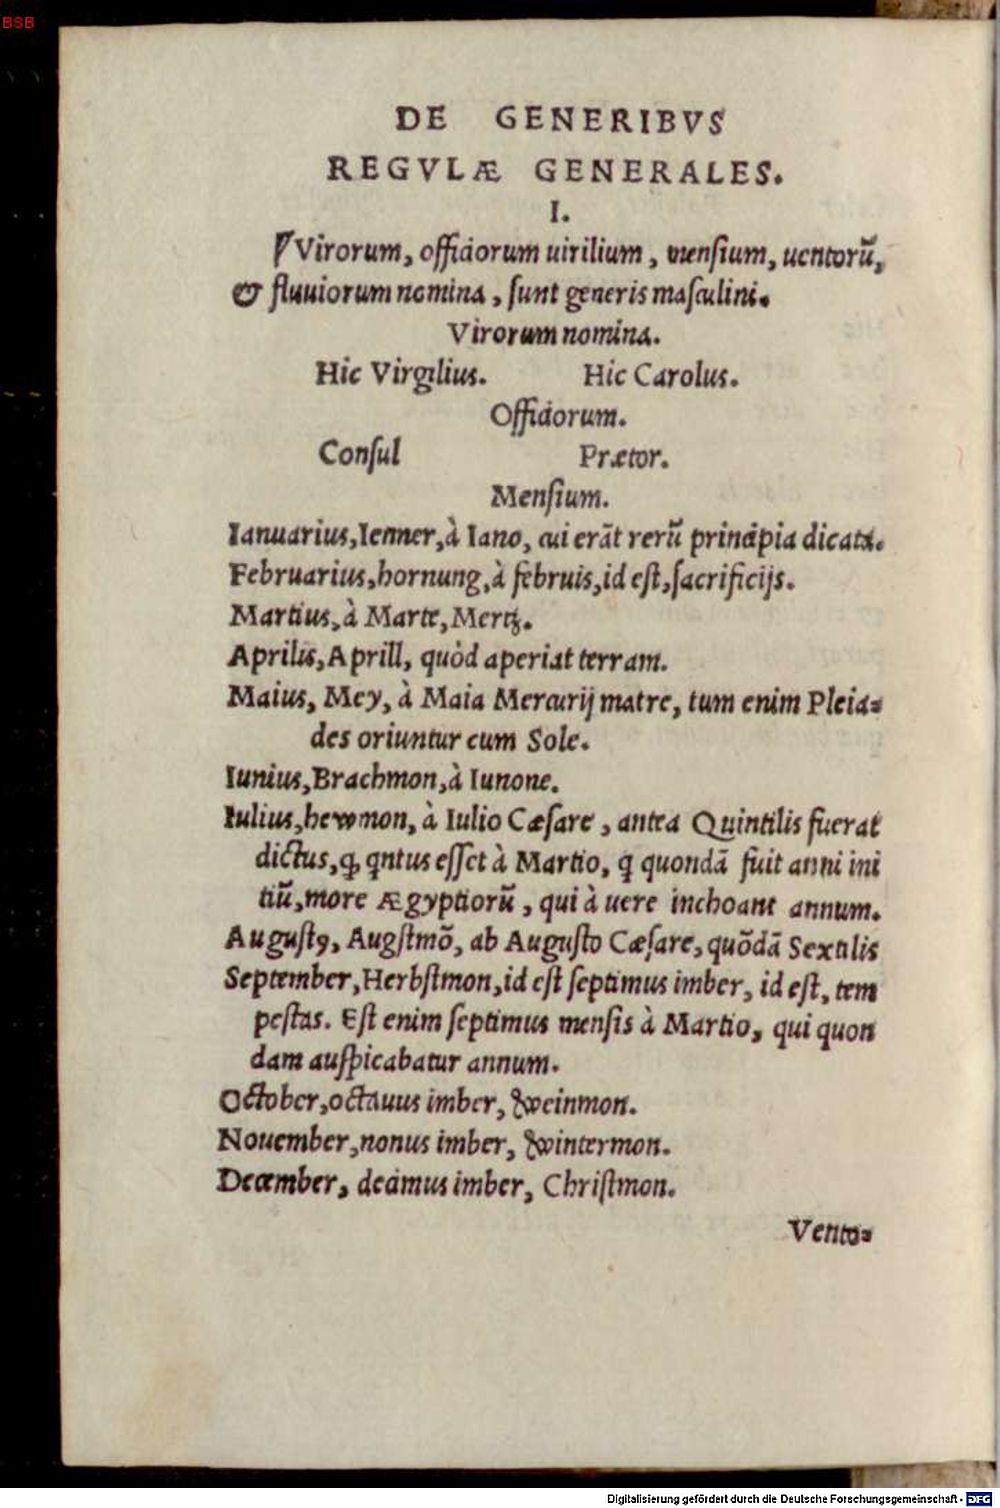 BSB
DE GENERIBVS
REGVLÆ GENERALES.
I.
Virorum, officiorum uirilium, mensium, uentorū,
& fluuiorum nomina, ſunt generis maſculini.
Virorum nomina.
Hic Virgilius. Hic Carolus.
Officiorum.
Conſul Prætor.
Menſium.
Ianuarius, Ienner, à Iano, cui erāt rerū principia dicata.
Februarius, hornung, à februis, id eſt, ſacrificijs.
Martius, à Marte, Mertz.
Aprilis, Aprill, quòd aperiat terram.
Maius, Mey, à Maia Mercurij matre, tum enim Pleia⸗
des oriuntur cum Sole.
Iunius, Brachmon, à Iunone.
Iulius, hewmon, à Iulio Cæſare, antea Quintilis fuerat
dictus, ꝙ qntus eſſet à Martio, q quondā fuit anni ini
tiū, more Ægyptiorū, qui à uere inchoant annum.
Auguſtꝰ, Augſtmō, ab Auguſto Cæſare, quōdā Sextilis
September, Herbſtmon, id eſt ſeptimus imber, id eſt, tem
peſtas. Eſt enim ſeptimus menſis à Martio, qui quon
dam auſpicabatur annum.
October, octauus imber, weinmon.
Nouember, nonus imber, wintermon.
December, decimus imber, Chriſtmon.
Vento⸗
Digitalisierung gefördert durch die Deutsche Forschungsgemeinschaft - DFG